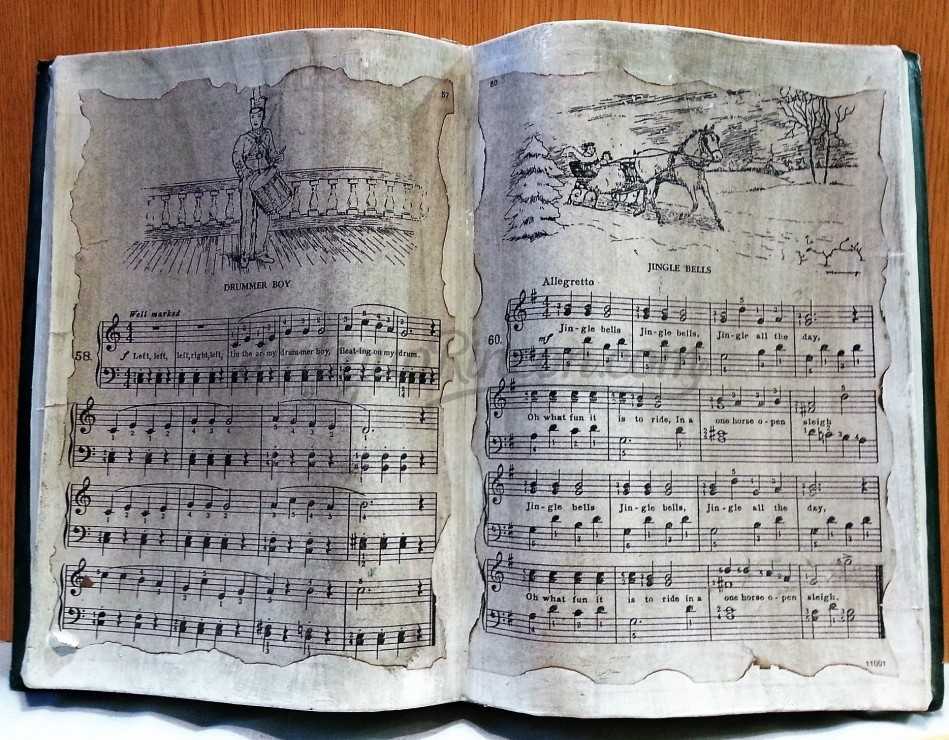 57
DRUMMER BOY
Well marked
58.
f Left, left, left, right, left, Im the ar-my drum-mer boy, Beat-ing on my drum.
60
JINGLE BELLS
Allegretto
60.
mf
Jin-gle bells Jin-gle bells, Jin-gle all the day,
Oh what fun it is to ride, In a one horse o-pen sleigh
Jin-gle bells Jin-gle bells, Jin-gle all the day,
Oh what fun it is to ride in a one horse o-pen sleigh.
11001